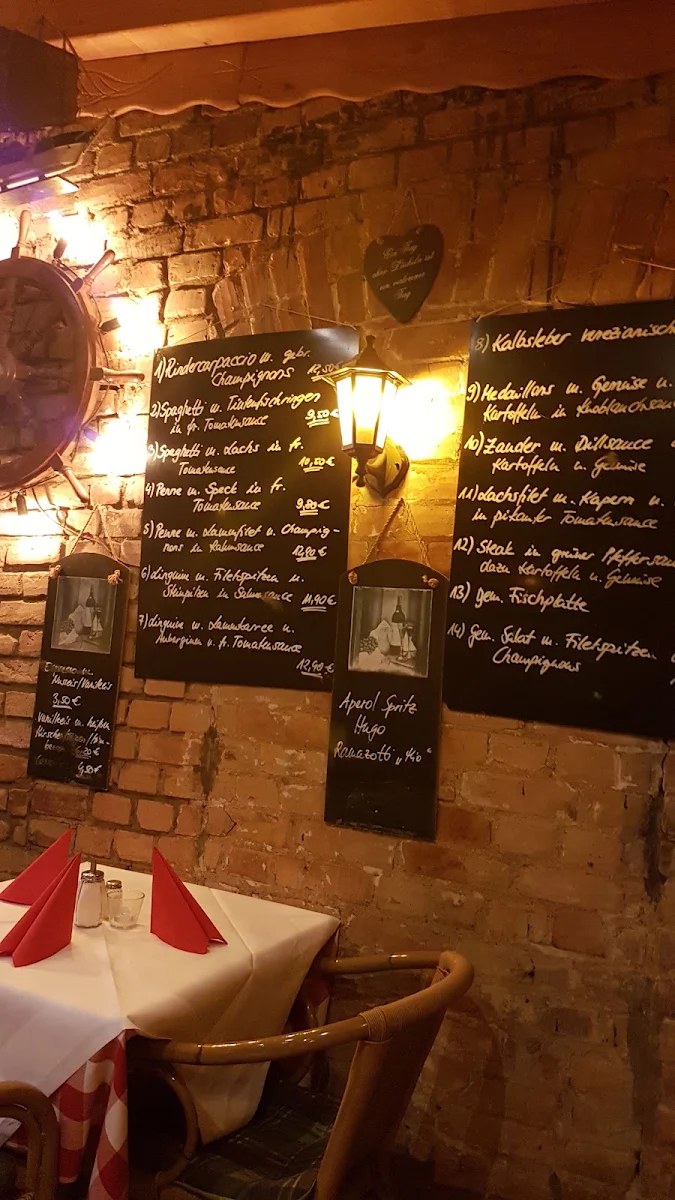 Ein Tag
ohne Dackeln ist
ein verlorener
Tag
1) Rindercarpaccio m. gebr.
Champignons 12,50€
2) Spaghetti m. Tintenfischringen
in fr. Tomatensauce 9,50€
3) Spaghetti m. Lachs in fr.
Tomatensauce 10,50€
4) Penne m. Speck in fr.
Tomatensauce 9,80€
5) Penne m. Lammfilet u. Champig-
nons in Rahmsauce 12,90€
6) Linguine m. Filetspitzen u.
Steinpilzen in Sahnesauce 11,90€
7) Linguine m. Lammkaree u.
Auberginen u. fr. Tomatensauce
12,90€
8) Kalbsleber venezianisch
9) Medaillons m. Gemüse u.
Kartoffeln in Knoblauchsau
10) Zander m. Dillsauce
Kartoffeln u. Gemüse
11) Lachsfilet m. Kapern u.
in pikanter Tomatensauce
12) Steak in grüner Pfeffersau
dazu Kartoffeln u. Gemüse
13) Gem. Fischplatte
14) Gem. Salat m. Filetspitzen
Champignons
Espresso m.
Vanilleeis
3,50€
Vanilleeis m. heißen
6,20€
4,50€
Aperol Spritz
Hugo
Ramazotti „Mio“